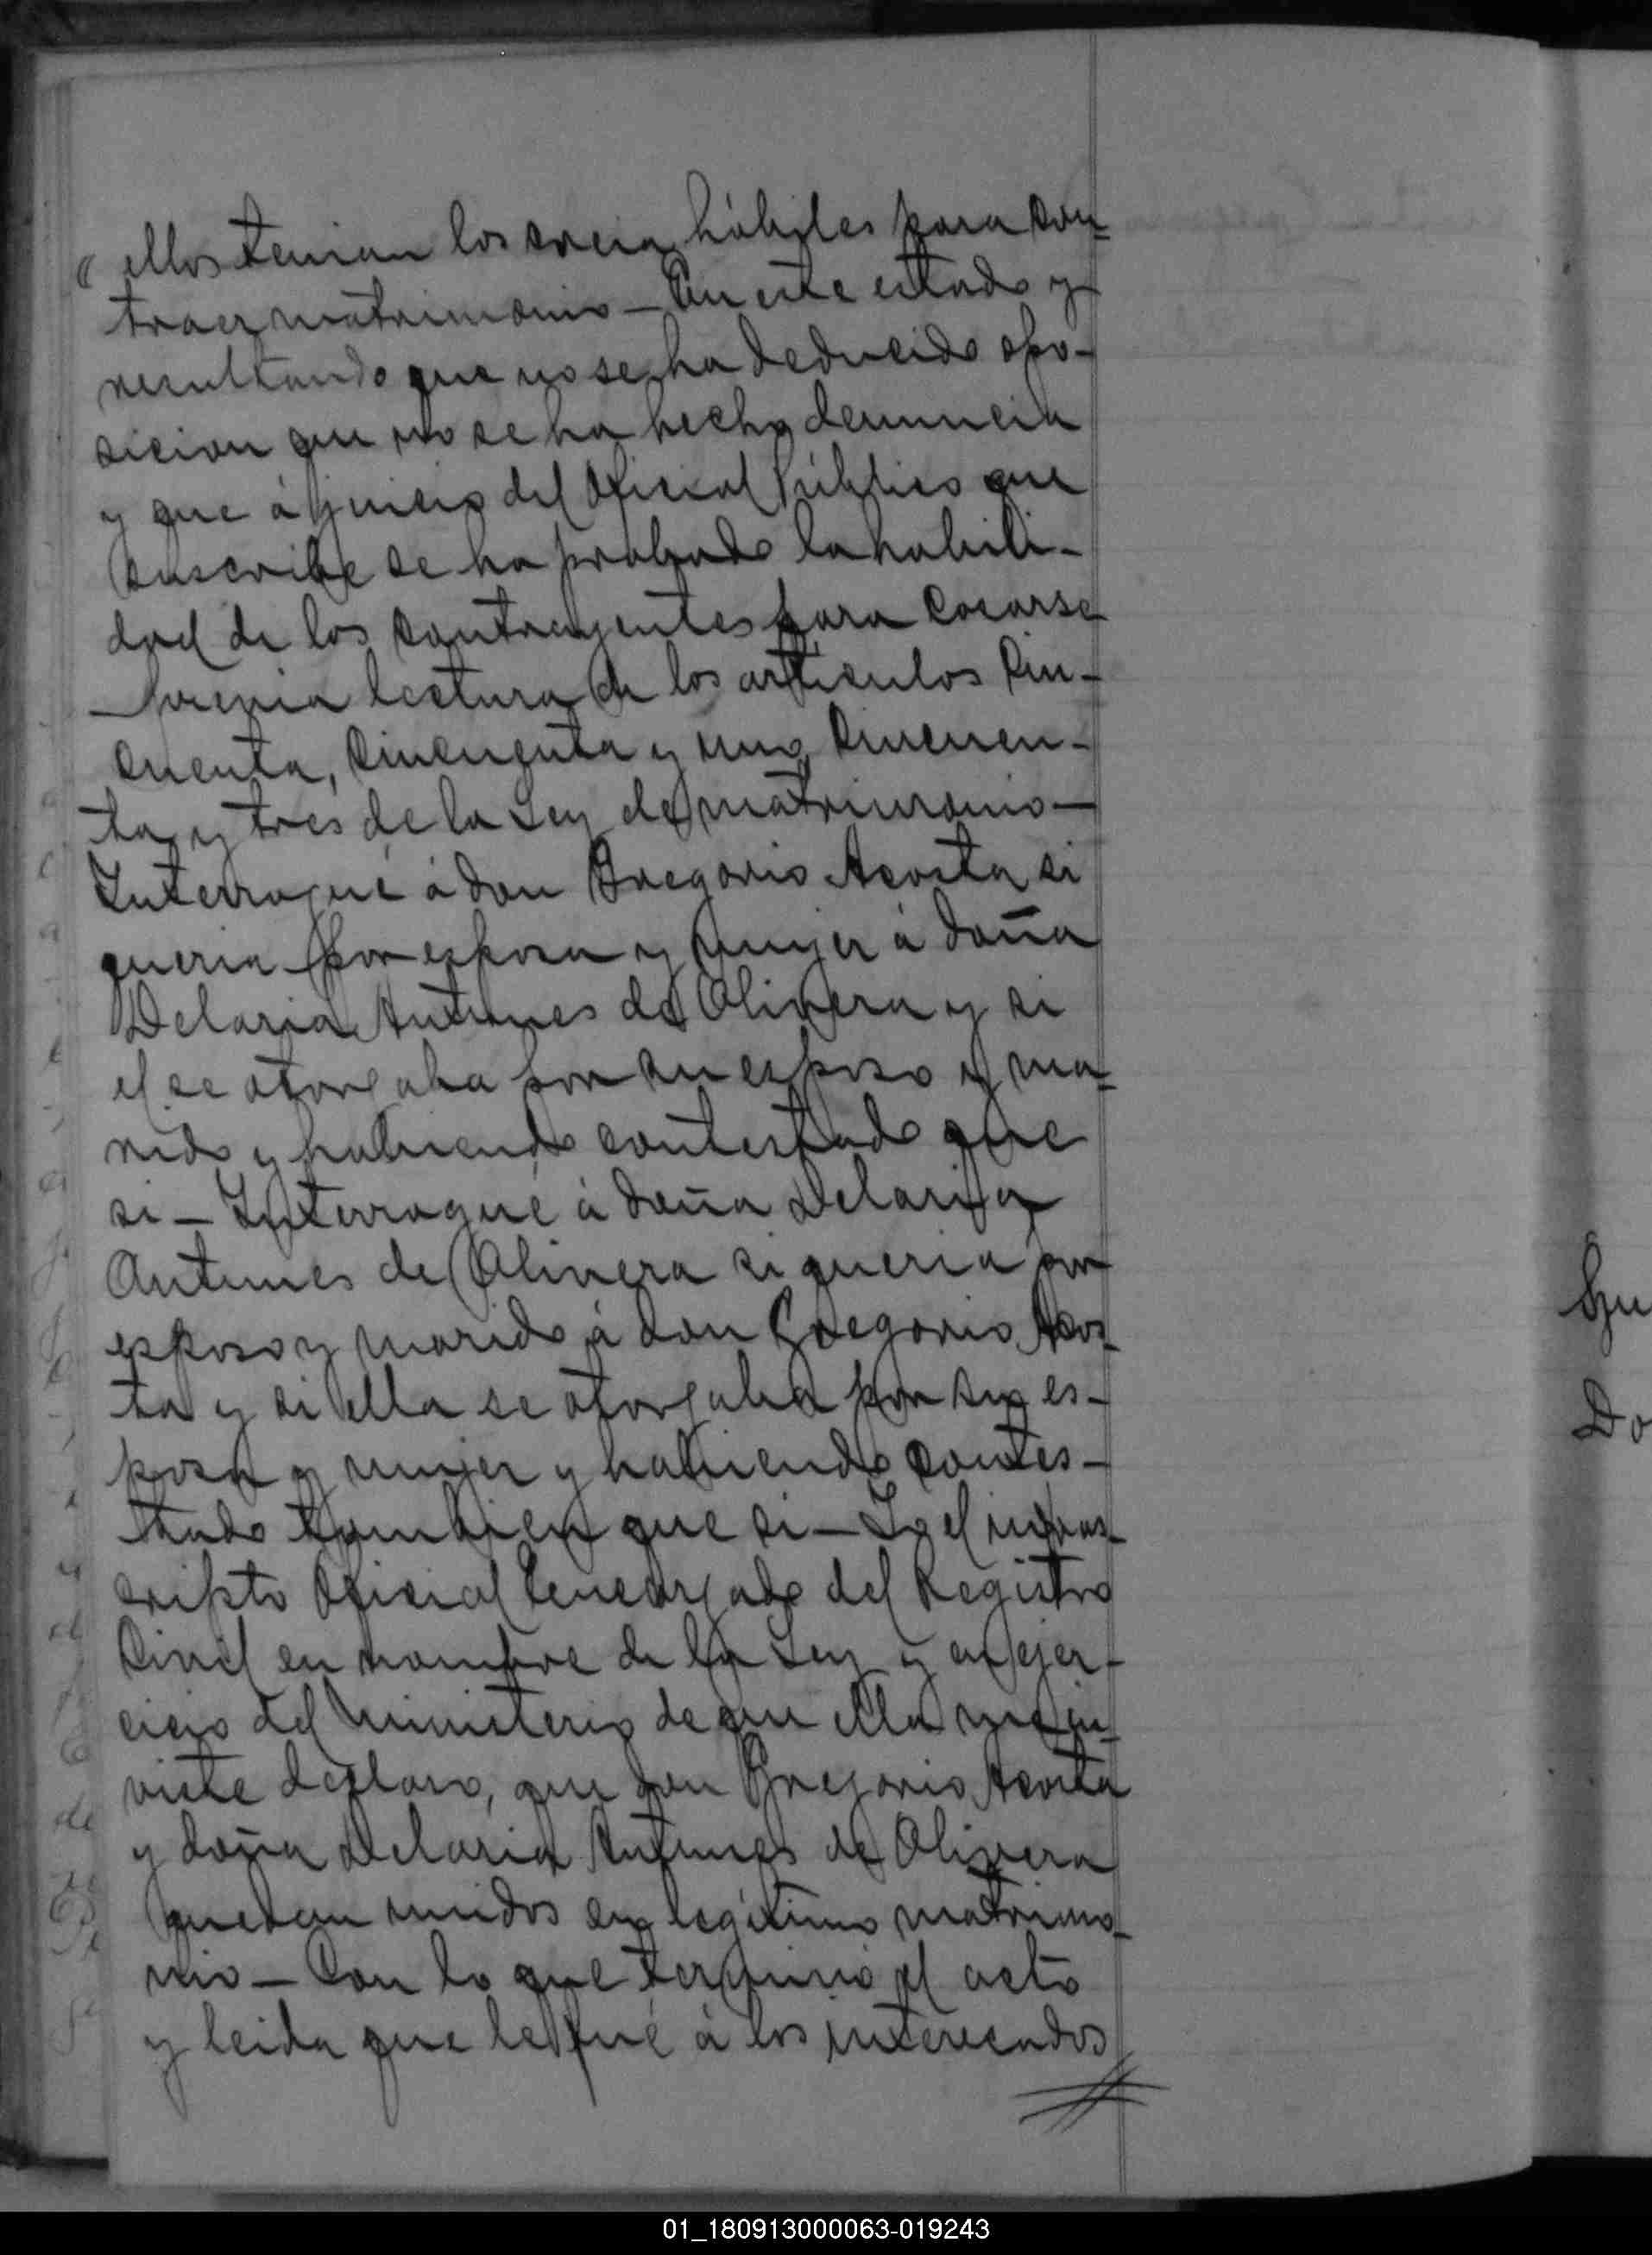 " ellos tenian los creia hábiles para con=
traer matrimonio — En este estado y
resultando que no se ha deducido opo-
sicion que no se ha hecho denuncia
y que á juicio del Oficial Público que
suscribe se ha probado la habili-
dad de los contrayentes para casarse
previa lectura de los artículos cin-
cuenta, cincuenta y uno, cincuen-
ta y tres de la Ley de matrimonio —
Interrogué á don Gregorio Acosta si
queria por esposa y mujer á doña
Delaria Antunes de Olivera y si
el se otorgaba por su esposo y ma=
rido y habiendo contestado que
si — Interrogué á doña Delaria
Antunes de Olivera si queria por
esposo y marido á don Gregorio Acos-
ta y si ella se otorgaba por su es-
posa y mujer y habiendo contes-
tado tambien que si — Yo el infras-
cripto Oficial Encargado del Registro
Civil en nombre de la Ley y en ejer-
cicio del ministerio de que ella me in-
viste declaro, que don Gregorio Acosta
y doña Delaria Antunes de Olivera
quedan unidos en legítimo matrimo-
nio — Con lo que terminó el acto
y leida que le fué á los interesados
01_180913000063-019243